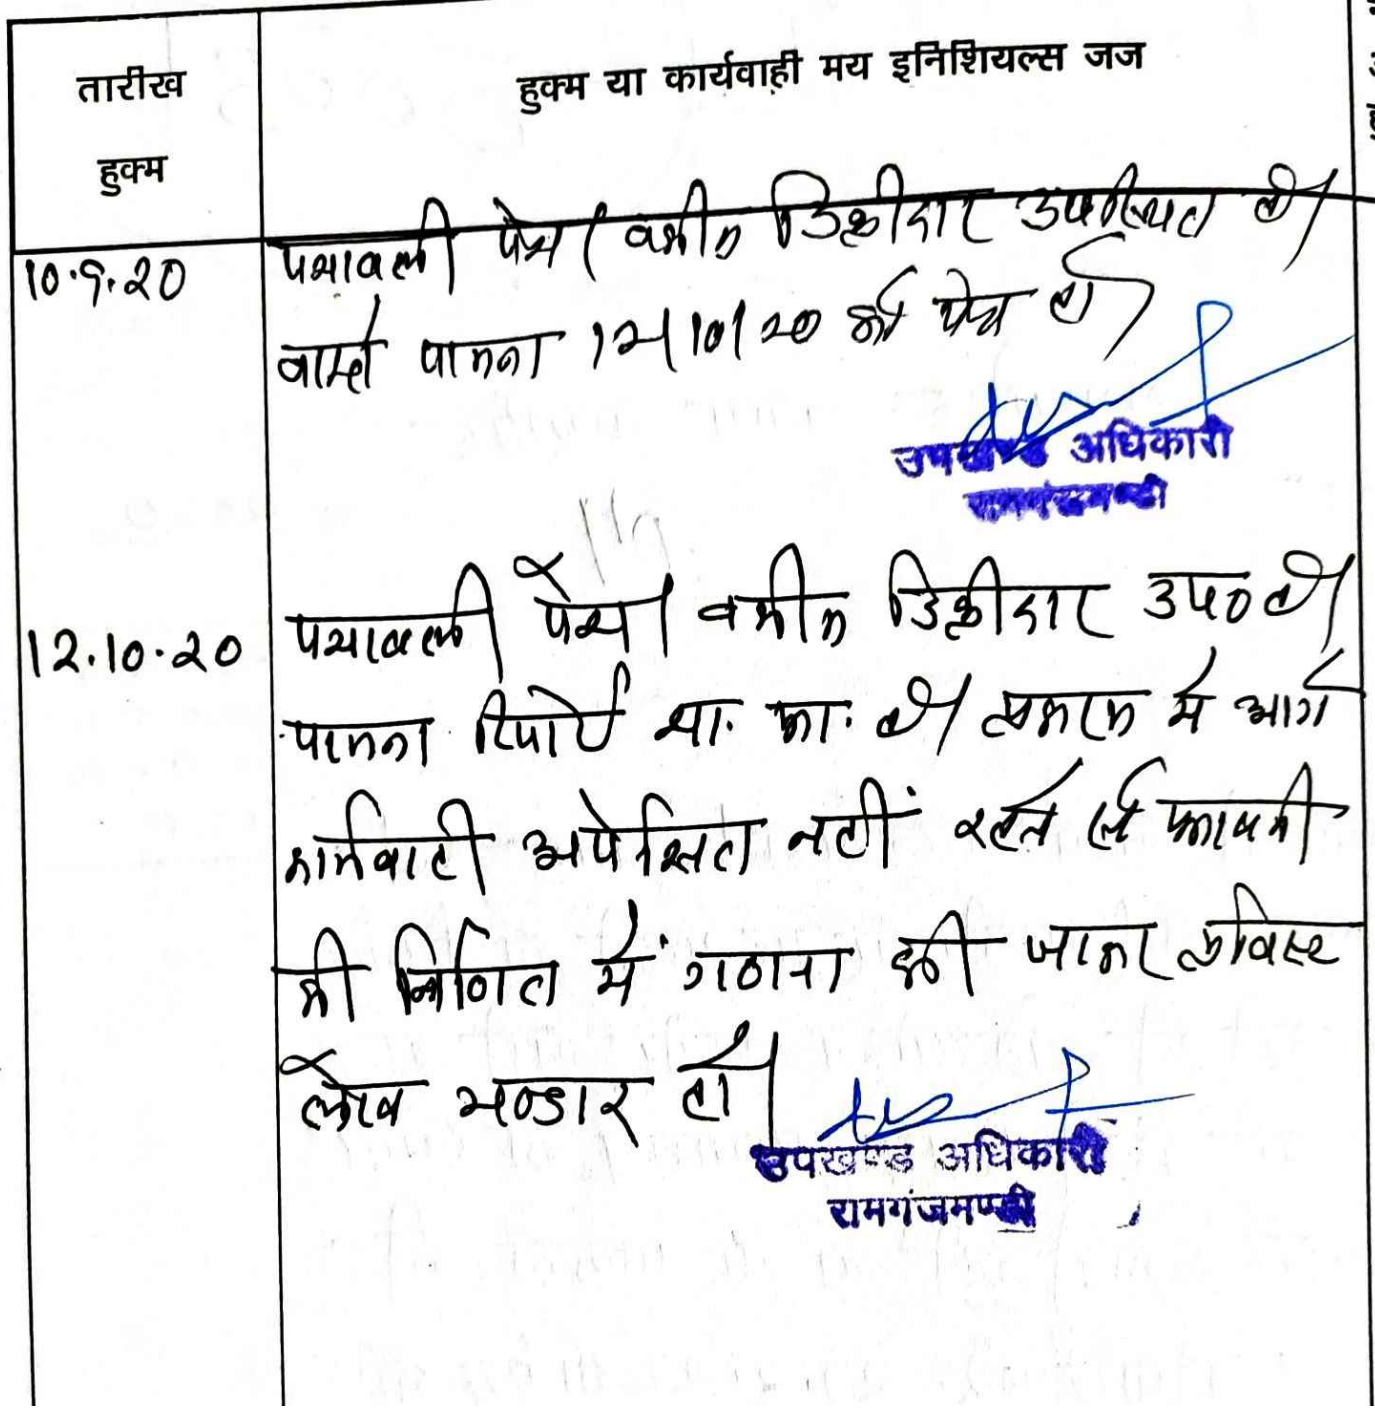 तारीख
हुक्म
हुक्म या कार्यवाही मय इनिशियल्स जज
10.9.20
पत्रावली पेश। वकील डिक्रीदार उपस्थित है।
वास्ते पालना 12/10/20 को पेश हो।
उपखण्ड अधिकारी
रामगंजमण्डी
12.10.20
पत्रावली पेश। वकील डिक्रीदार उप० है।
पालना रिपोर्ट शा. फा. है। प्रकरण में आगे
कार्यवाही अपेक्षित नहीं रहने से पत्रावली
की निर्णित में गणना की जाकर दाखिल
लेख भण्डार हो।
उपखण्ड अधिकारी
रामगंजमण्डी